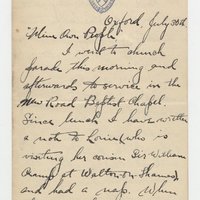 Oxford, July 30th
"Mine Own People"
I went to church
parade this morning and
afterwards to service in the
New Road Baptist Chapel.
Since lunch I have written
a note to Louise (who is
visiting her cousin Sir William
at Walton on Thames)
and had a nap. When